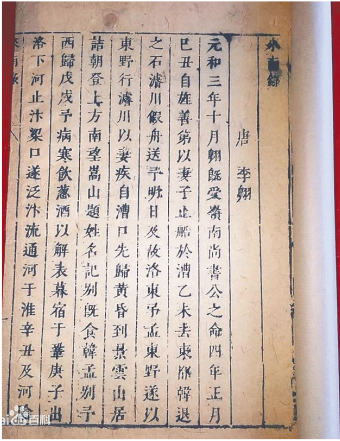 來南錄
唐 李翱
元和三年十月翱旣受嶺南尚書公之命四年正月
己丑自旌善第以妻子止船於漕乙未去東都韓退
之石濬川假舟送予明日及故洛東弔孟東野遂以
東野行濬川以妻疾自漕口先歸黃昏到景雲山居
詰朝登上方南望嵩山題姓名記別旣食韓孟別予
西歸戊戌予病寒飲蔥酒以解表暮宿于鞏庚子出
洛下河止汴梁口遂泛汴流通河于淮辛丑及河
Baidu百科